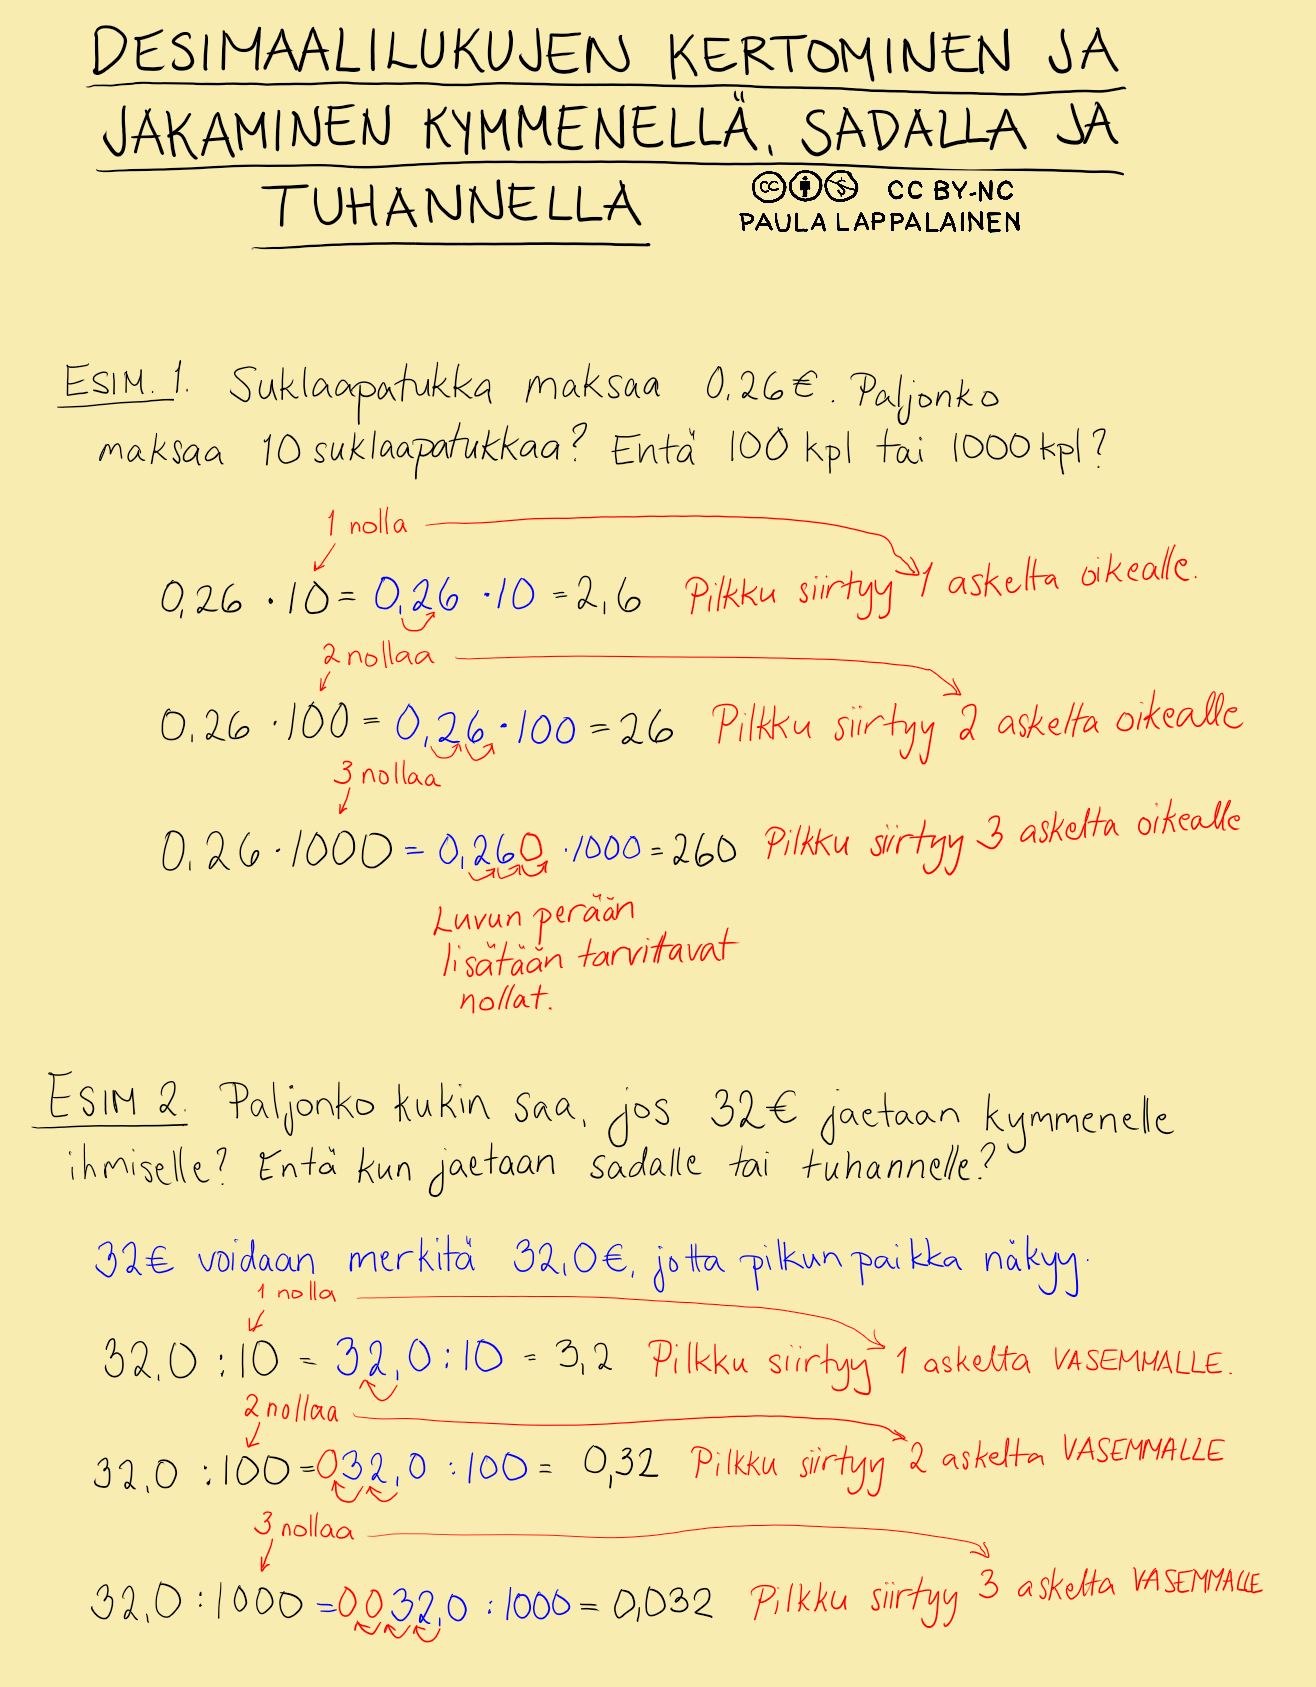 DESIMAALILUKUJEN KERTOMINEN JA
JAKAMINEN KYMMENELLÄ, SADALLA JA
TUHANNELLA
CC BY-NC
PAULA LAPPALAINEN
ESIM. 1. Suklaapatukka maksaa 0,26€. Paljonko
maksaa 10 suklaapatukkaa? Entä 100 kpl tai 1000 kpl?
1 nolla
0,26 · 10 = 0,26 · 10 = 2,6 Pilkku siirtyy 1 askelta oikealle.
2 nollaa
0,26 · 100 = 0,26 · 100 = 26 Pilkku siirtyy 2 askelta oikealle
3 nollaa
0,26 · 1000 = 0,260 · 1000 = 260 Pilkku siirtyy 3 askelta oikealle
Luvun perään
lisätään tarvittavat
nollat.
ESIM 2. Paljonko kukin saa, jos 32€ jaetaan kymmenelle
ihmiselle? Entä kun jaetaan sadalle tai tuhannelle?
32€ voidaan merkitä 32,0€, jotta pilkun paikka näkyy.
1 nolla
32,0 : 10 = 32,0 : 10 = 3,2 Pilkku siirtyy 1 askelta VASEMMALLE.
2 nollaa
32,0 : 100 = 032,0 : 100 = 0,32 Pilkku siirtyy 2 askelta VASEMMALLE
3 nollaa
32,0 : 1000 = 0032,0 : 1000 = 0,032 Pilkku siirtyy 3 askelta VASEMMALLE